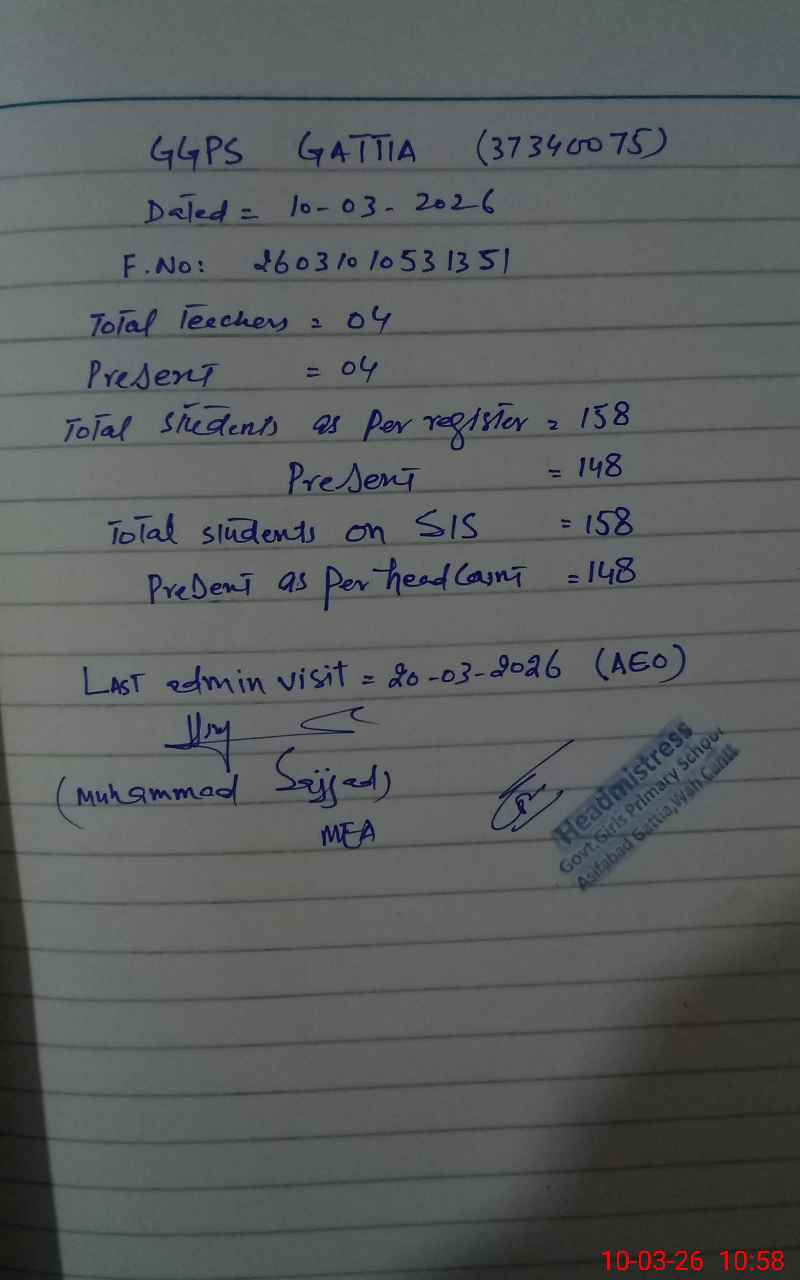 GGPS GATTIA (37340075)
Dated = 10-03-2026
F.No: 2603101053 1351
Total Teachers = 04
Present = 04
Total students as per register = 158
Present = 148
Total students on SIS = 158
Present as per headcount = 148
LAST admin visit = 20-03-2026 (AEO)
(Muhammad Sajjad)
MEA
Headmistress
Govt.Girls Primary School
Asifabad Gattia,Wah Cantt
10-03-26 10:58